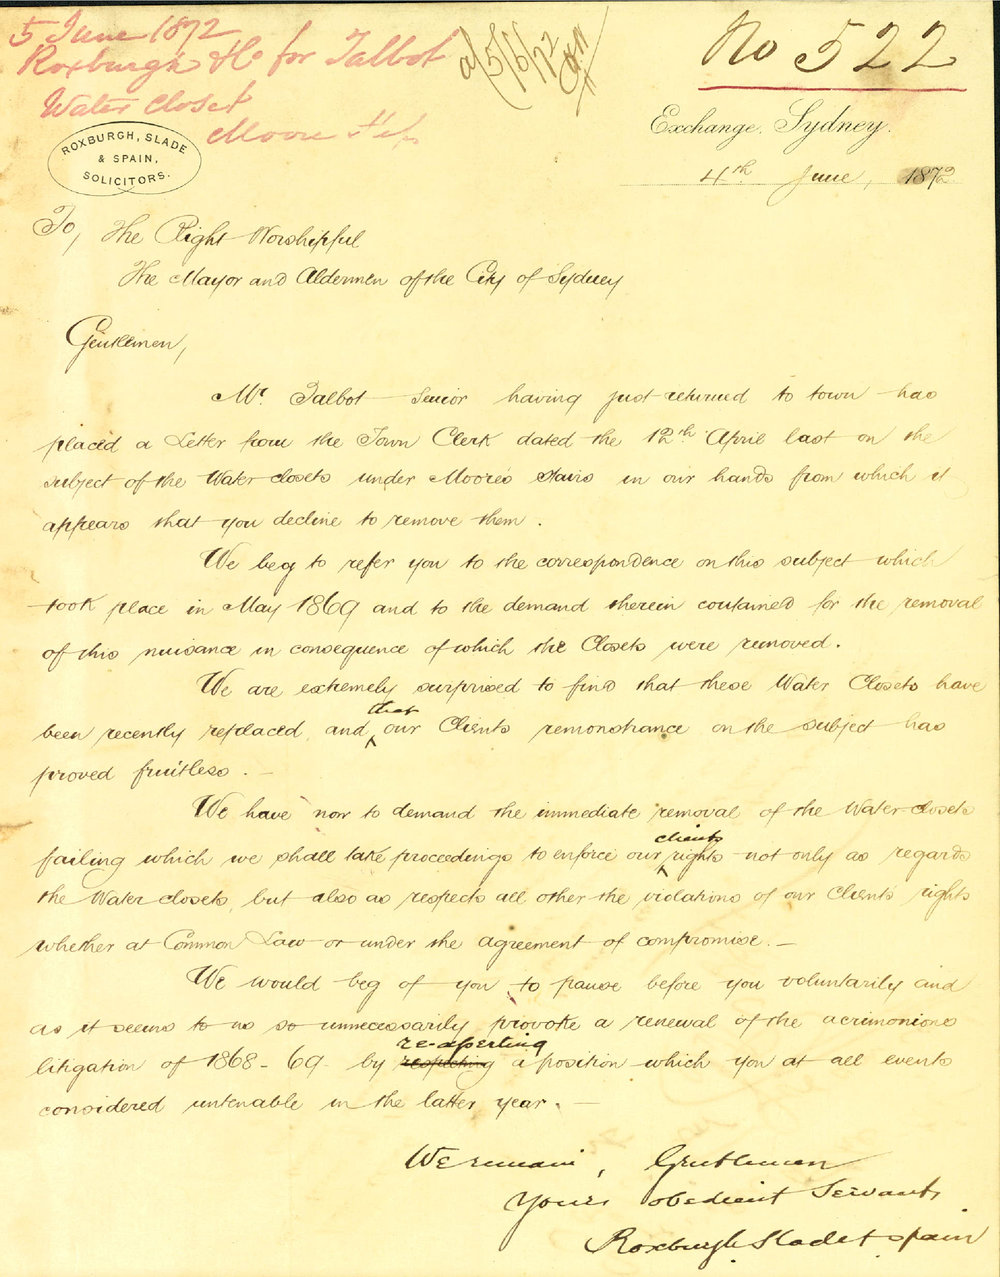 5 June 1872
Roxburgh & Co for Talbot
Water Closet
Moore St
5/6/72
No 522
ROXBURGH, SLADE
& SPAIN,
SOLICITORS.
Exchange, Sydney.
4th June, 1872
To, The Right Worshipful
The Mayor and Aldermen of the City of Sydney
Gentlemen,
Mr. Talbot Senior having just returned to town has
placed a Letter from the Town Clerk dated the 12th April last on the
subject of the Water closets under Moore's Stairs in our hands from which it
appears that you decline to remove them.
We beg to refer you to the correspondence on this subject which
took place in May 1869 and to the demand therein contained for the removal
of this nuisance in consequence of which the Closets were removed.
We are extremely surprised to find that these Water Closets have
been recently replaced, and that our Clients remonstrance on the subject has
proved fruitless. —
We have now to demand the immediate removal of the Water closets
failing which we shall take proceedings to enforce our clients rights not only as regards
the Water closets, but also as respects all other the violations of our Clients' rights
whether at Common Law or under the agreement of compromise. —
We would beg of you to pause before you voluntarily and
as it seems to us so unnecessarily provoke a renewal of the acrimonious
litigation of 1868-69 by re-asserting a position which you at all events
considered untenable in the latter year. —
We remain, Gentlemen
Your obedient Servants
Roxburgh Slade & Spain